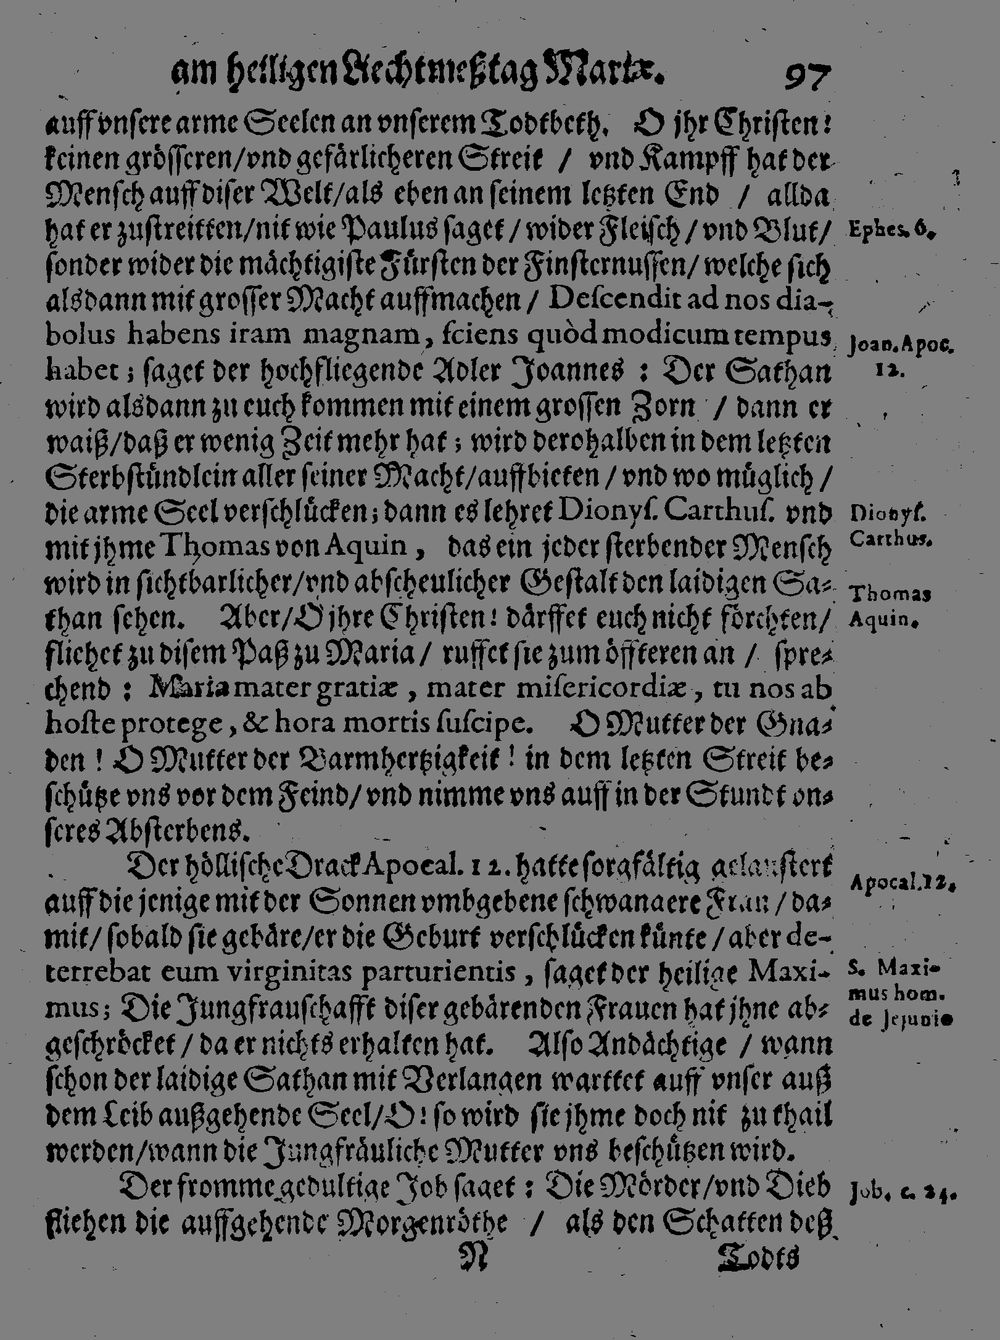 am heiligen Liechtmeßtag Mariæ. 97
auff vnsere arme Seelen an vnserem Todtbeth. O jhr Christen!
keinen grösseren/vnd gefärlicheren Streit / vnd Kampff hat der
Mensch auff diser Welt/als eben an seinem letzten End / allda
hat er zustreitten/nit wie Paulus saget/wider Fleisch/vnd Blut/
Ephes. 6.
sonder wider die mächtigiste Fürsten der Finsternussen/welche sich
alsdann mit grosser Macht auffmachen/ Descendit ad nos dia-
bolus habens iram magnam, sciens quòd modicum tempus
Joan. Apoc.
12.
habet; saget der hochfliegende Adler Joannes : Der Sathan
wird alsdann zu euch kommen mit einem grossen Zorn / dann er
waiß/daß er wenig Zeit mehr hat; wird derohalben in dem letzten
Sterbstündlein aller seiner Macht/auffbieten/vnd wo müglich/
die arme Seel verschlücken; dann es lehret Dionys. Carthus. vnd
Dionys.
Carthus.
mit jhme Thomas von Aquin, das ein jeder sterbender Mensch
wird in sichtbarlicher/vnd abscheulicher Gestalt den laidigen Sa-
Thomas
Aquin.
than sehen. Aber/O jhre Christen! därffet euch nicht förchten/
fliehet zu disem Paß zu Maria/ ruffet sie zum öffteren an / spre-
chend : Maria mater gratiæ, mater misericordiæ, tu nos ab
hoste protege, & hora mortis suscipe. O Mutter der Gna-
den! O Mutter der Barmhertzigkeit! in dem letzten Streit be-
schütze vns vor dem Feind/vnd nimme vns auff in der Stundt vn-
seres Absterbens.
Der höllische Drack Apocal. 12. hatte sorgfältig gelaustert
Apocal. 12.
auff die jenige mit der Sonnen vmbgebene schwangere Frau/da-
mit/sobald sie gebäre/er die Geburt verschlücken künte/aber de-
terrebat eum virginitas parturientis, saget der heilige Maxi-
S. Maxi-
mus hom.
de Jejunio
mus; Die Jungfrauschafft diser gebärenden Frauen hat jhne ab-
geschröcket/da er nichts erhalten hat. Also Andächtige / wann
schon der laidige Sathan mit Verlangen warttet auff vnser auß
dem Leib außgehende Seel/O! so wird sie jhme doch nit zu thail
werden/wann die Jungfräuliche Mutter vns beschützen wird.
Der fromme gedultige Job saget : Die Mörder/vnd Dieb
Job. c. 24.
fliehen die auffgehende Morgenröthe / als den Schatten deß
N Todts